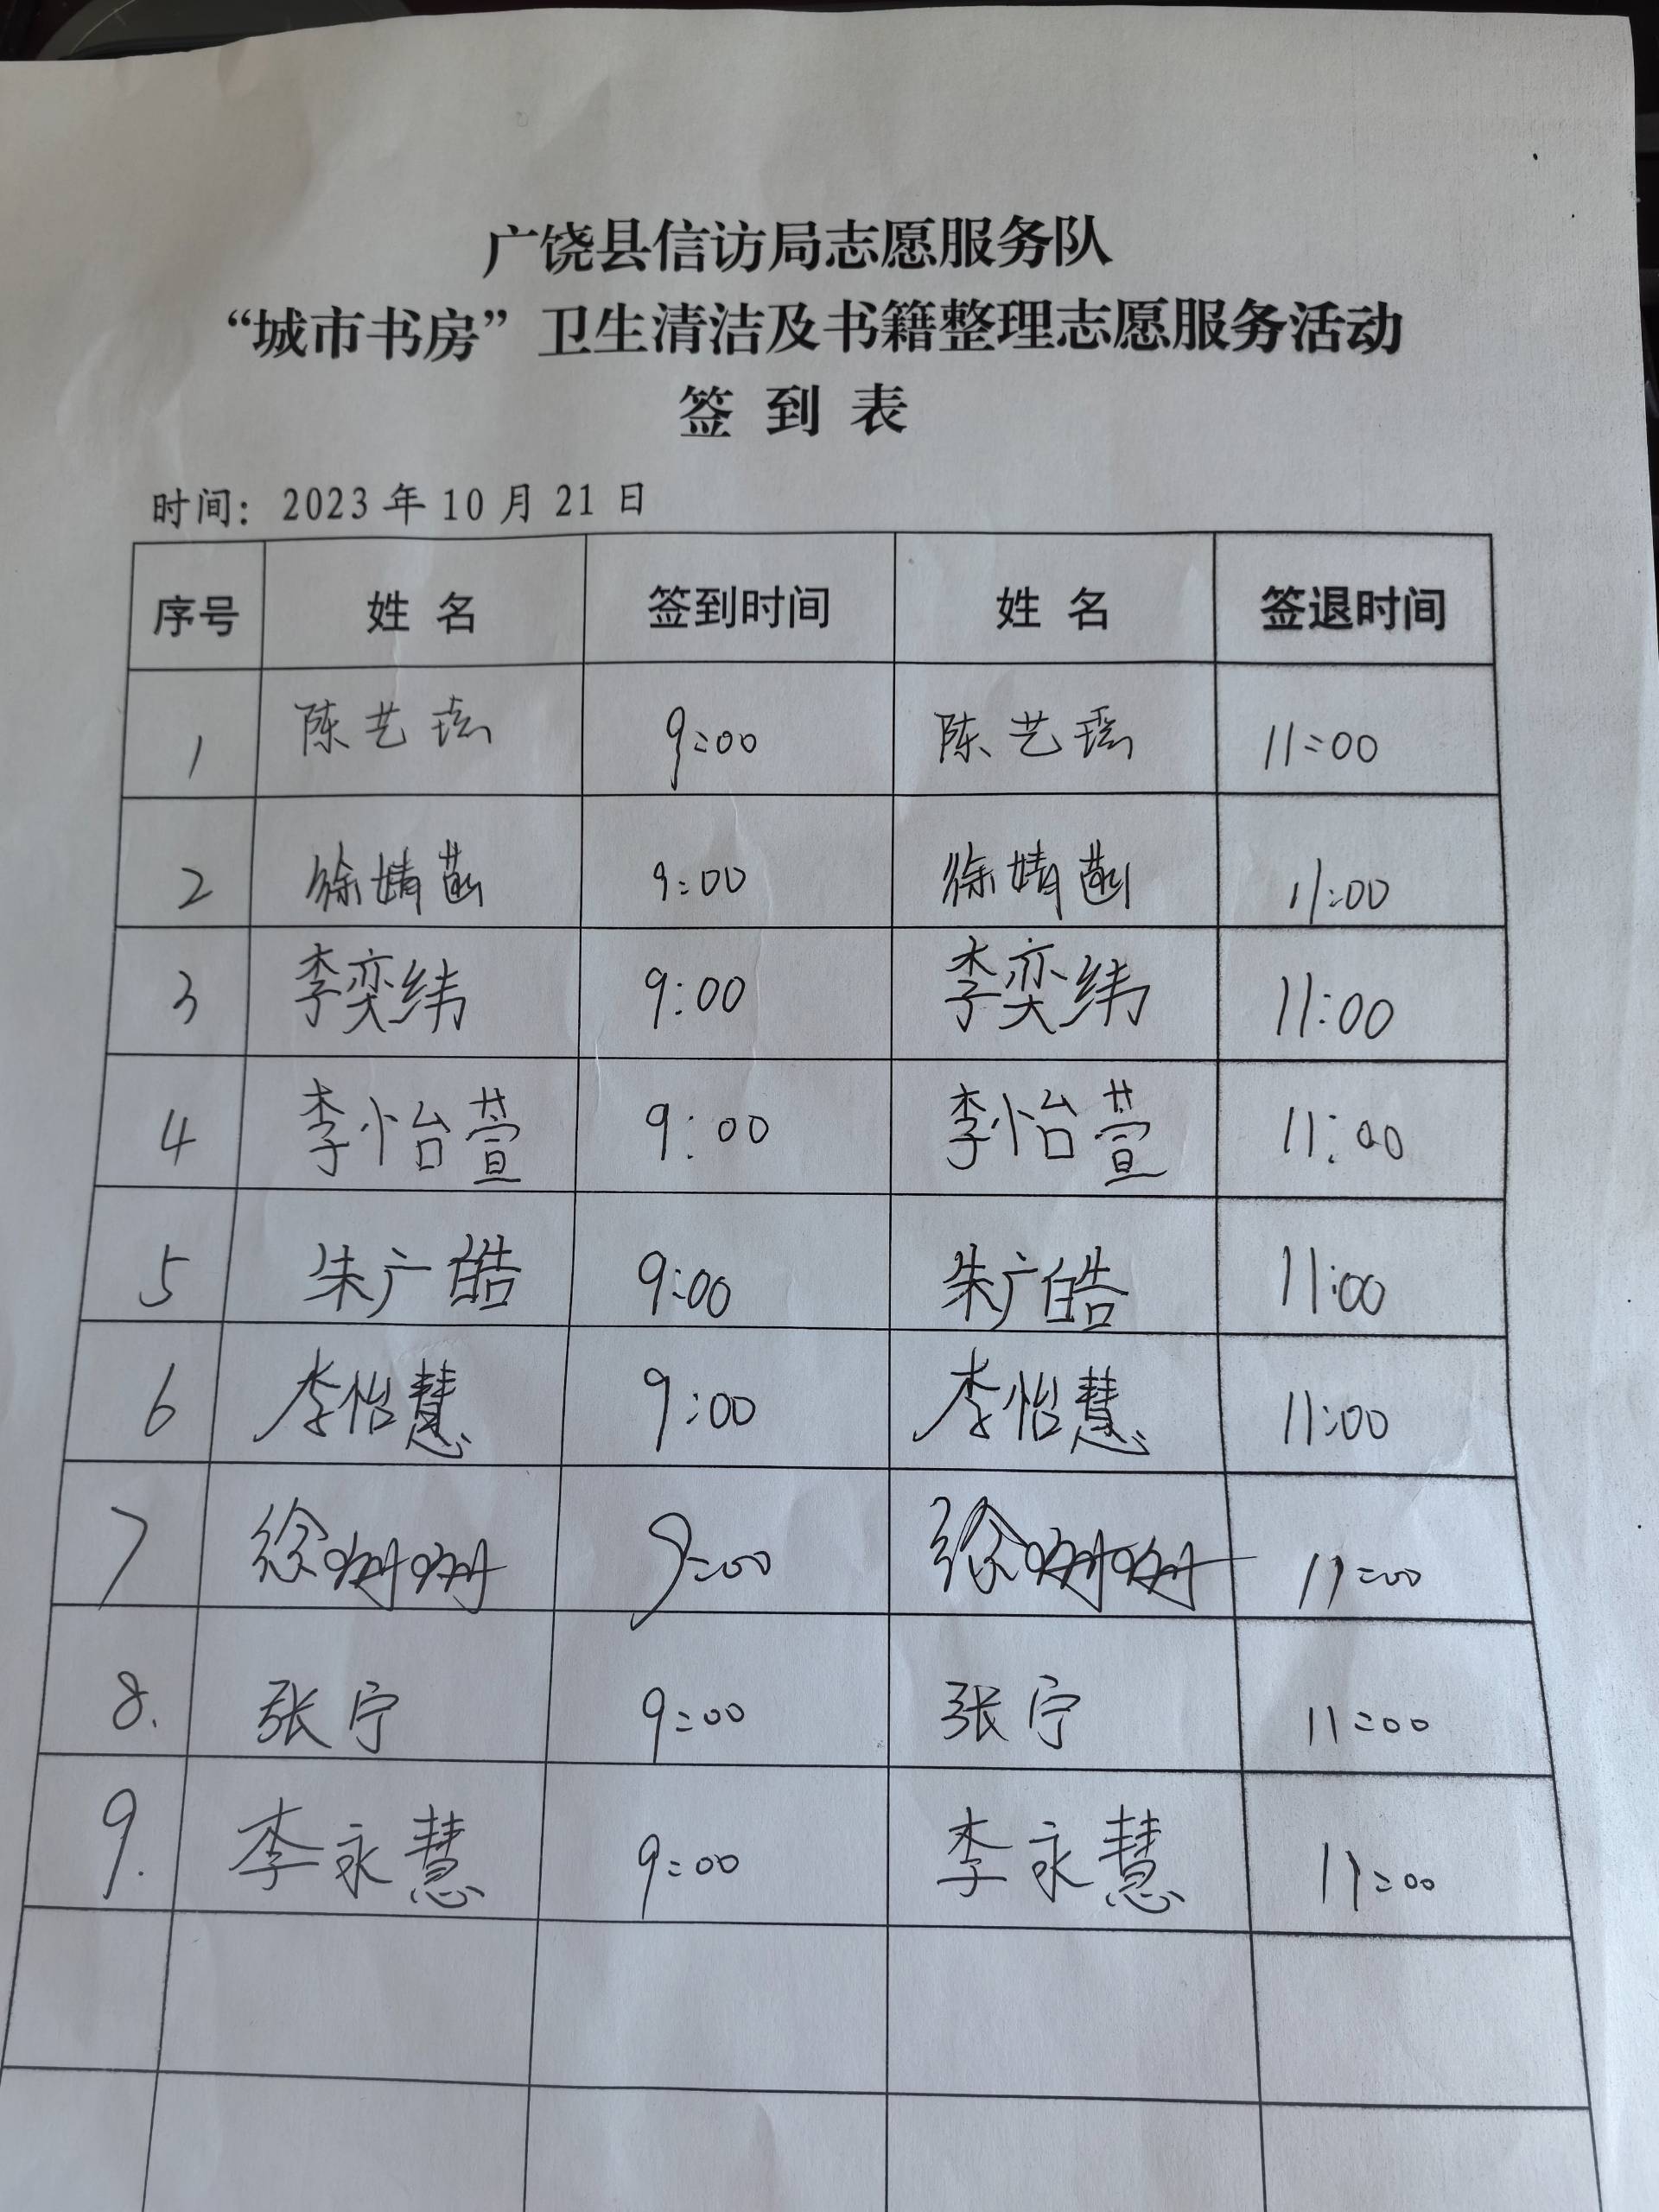 广饶县信访局志愿服务队
“城市书房”卫生清洁及书籍整理志愿服务活动
签 到 表
时间：2023 年 10 月 21 日
序号 姓 名 签到时间 姓 名 签退时间
1 陈艺瑶 9:00 陈艺瑶 11:00
2 徐婧菡 9:00 徐婧菡 11:00
3 李奕纬 9:00 李奕纬 11:00
4 李怡萱 9:00 李怡萱 11:00
5 朱广皓 9:00 朱广皓 11:00
6 李怡慧 9:00 李怡慧 11:00
7 徐姗姗 9:00 徐姗姗 11:00
8. 张宁 9:00 张宁 11:00
9. 李永慧 9:00 李永慧 11:00